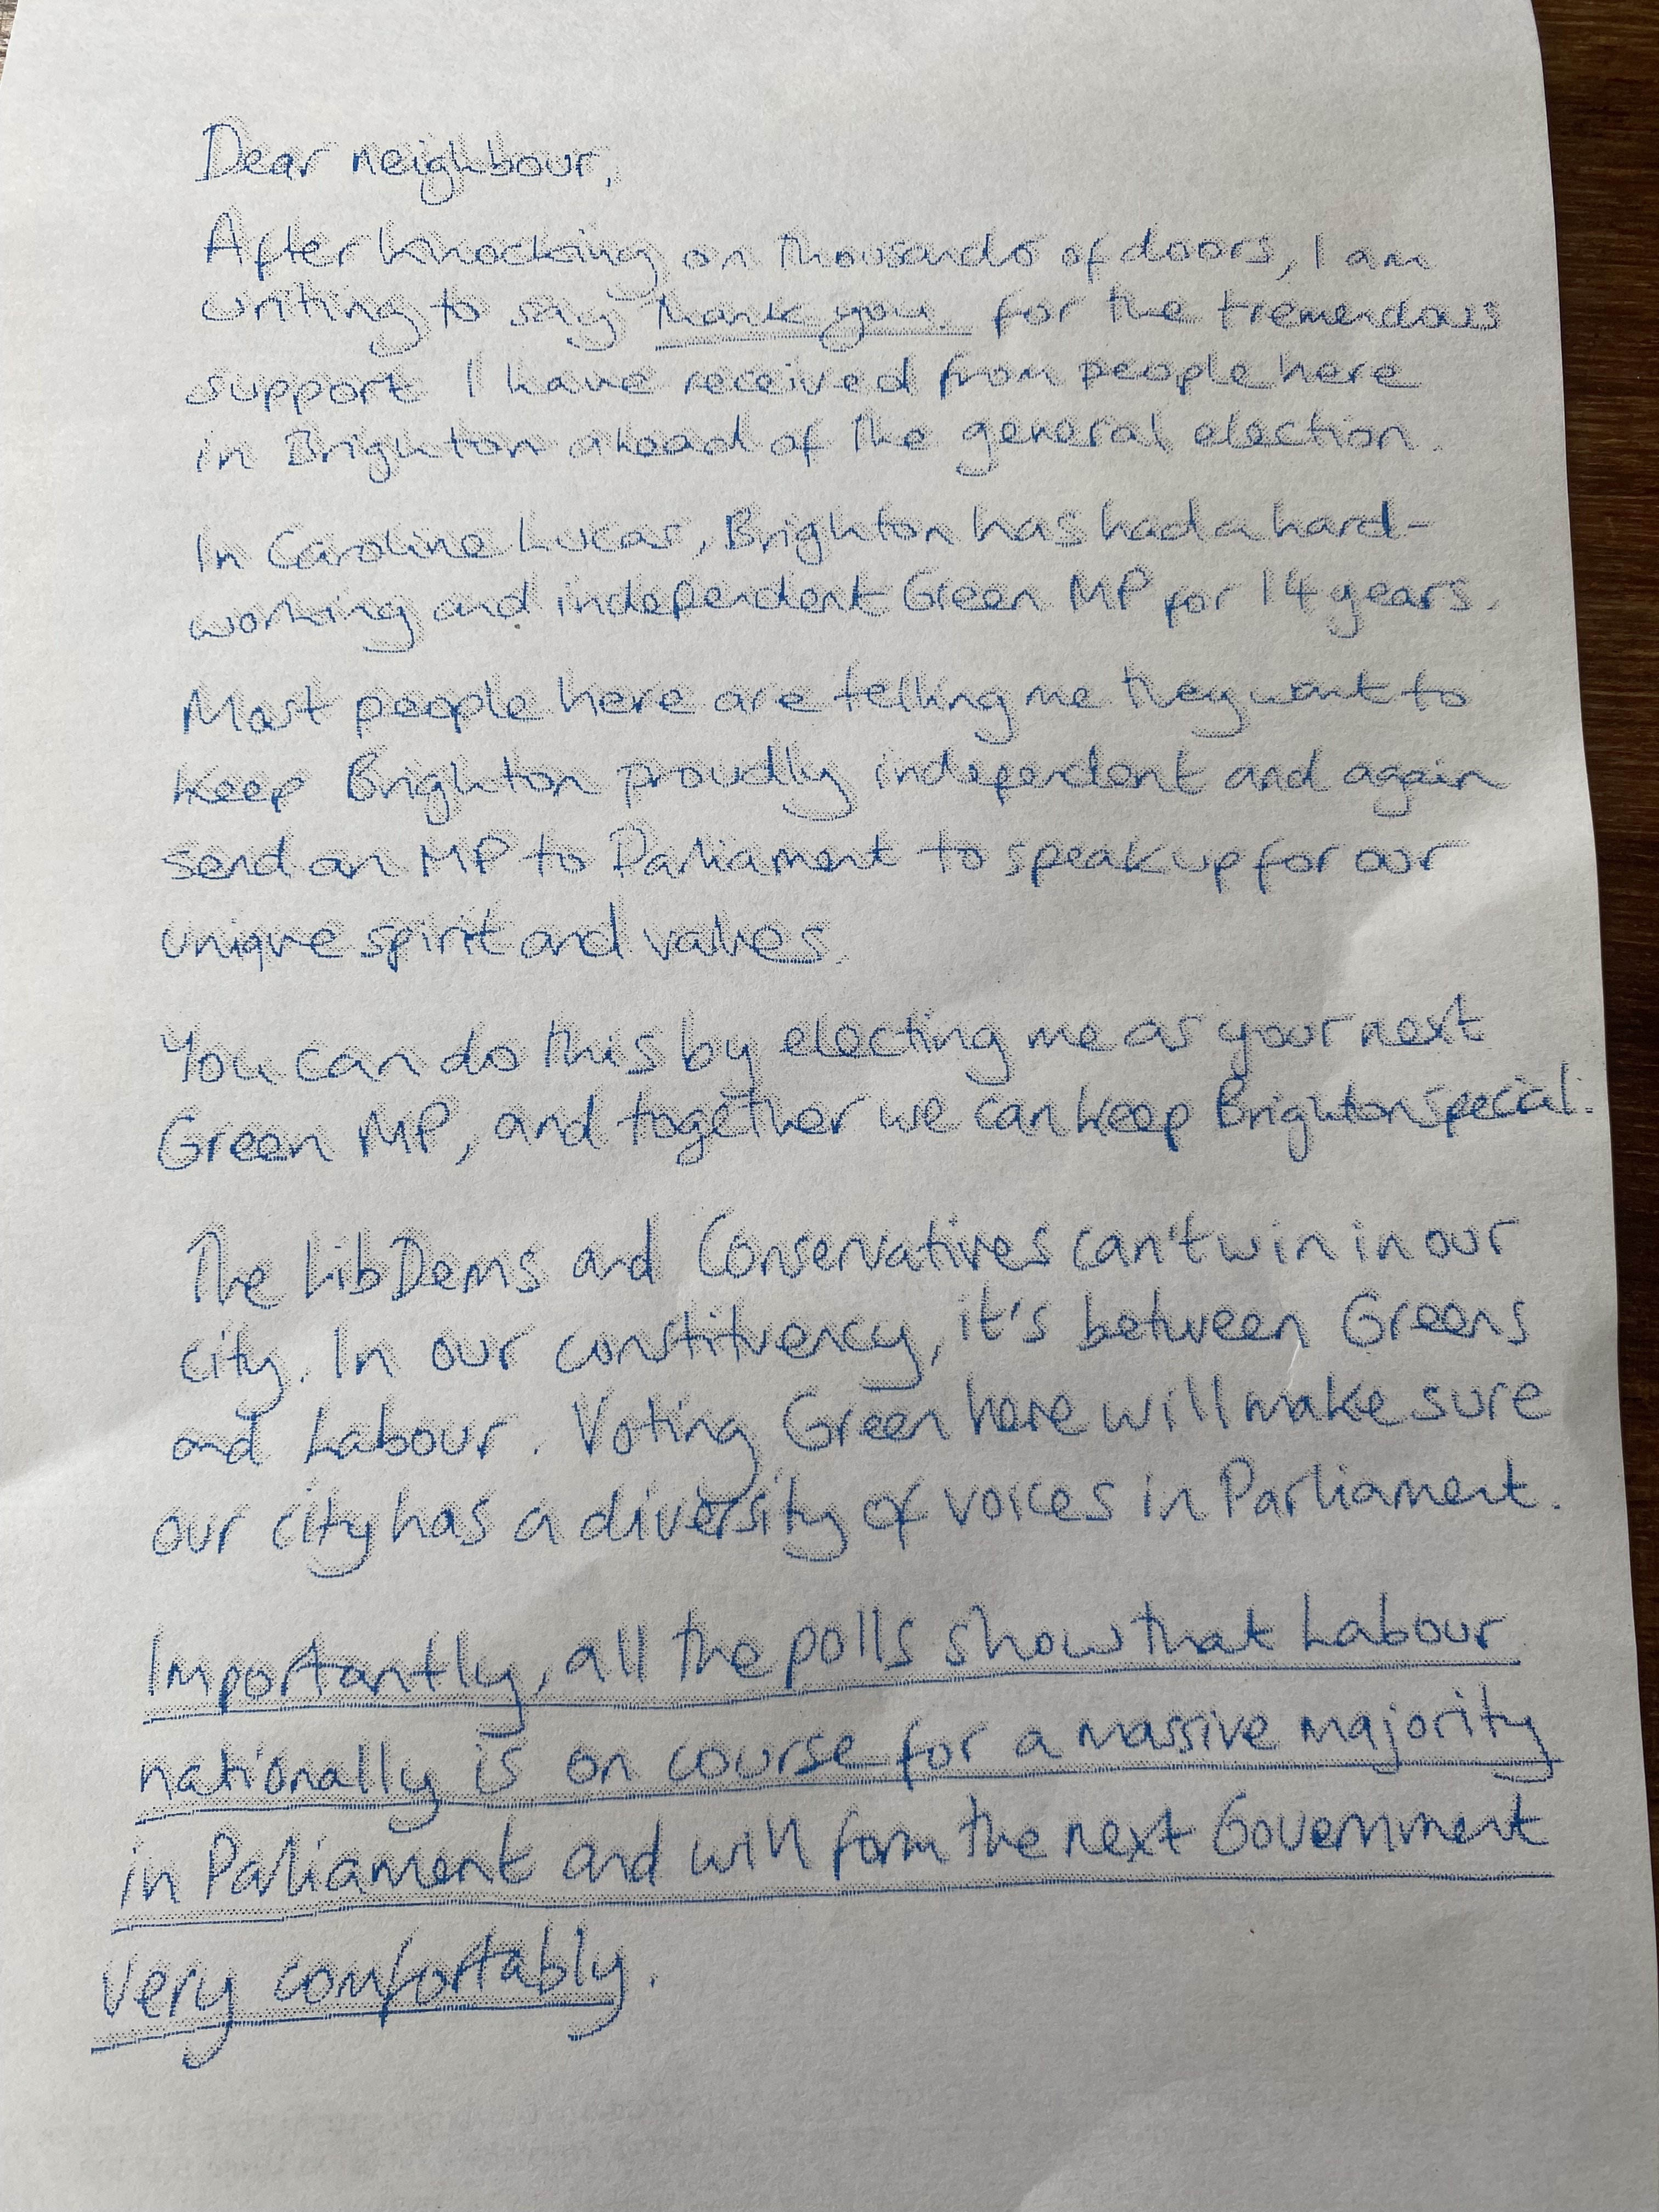 Dear neighbour,
After knocking on thousands of doors, I am
writing to say thank you for the tremendous
support I have received from people here
in Brighton ahead of the general election.
In Caroline Lucas, Brighton has had a hard-
working and independent Green MP for 14 years.
Most people here are telling me they want to
keep Brighton proudly independent and again
send an MP to Parliament to speak up for our
unique spirit and values.
You can do this by electing me as your next
Green MP, and together we can keep Brighton special.
The Lib Dems and Conservatives can't win in our
city. In our constituency, it's between Greens
and Labour. Voting Green here will make sure
our city has a diversity of voices in Parliament.
Importantly, all the polls show that Labour
nationally is on course for a massive majority
in Parliament and will form the next Government
very comfortably.